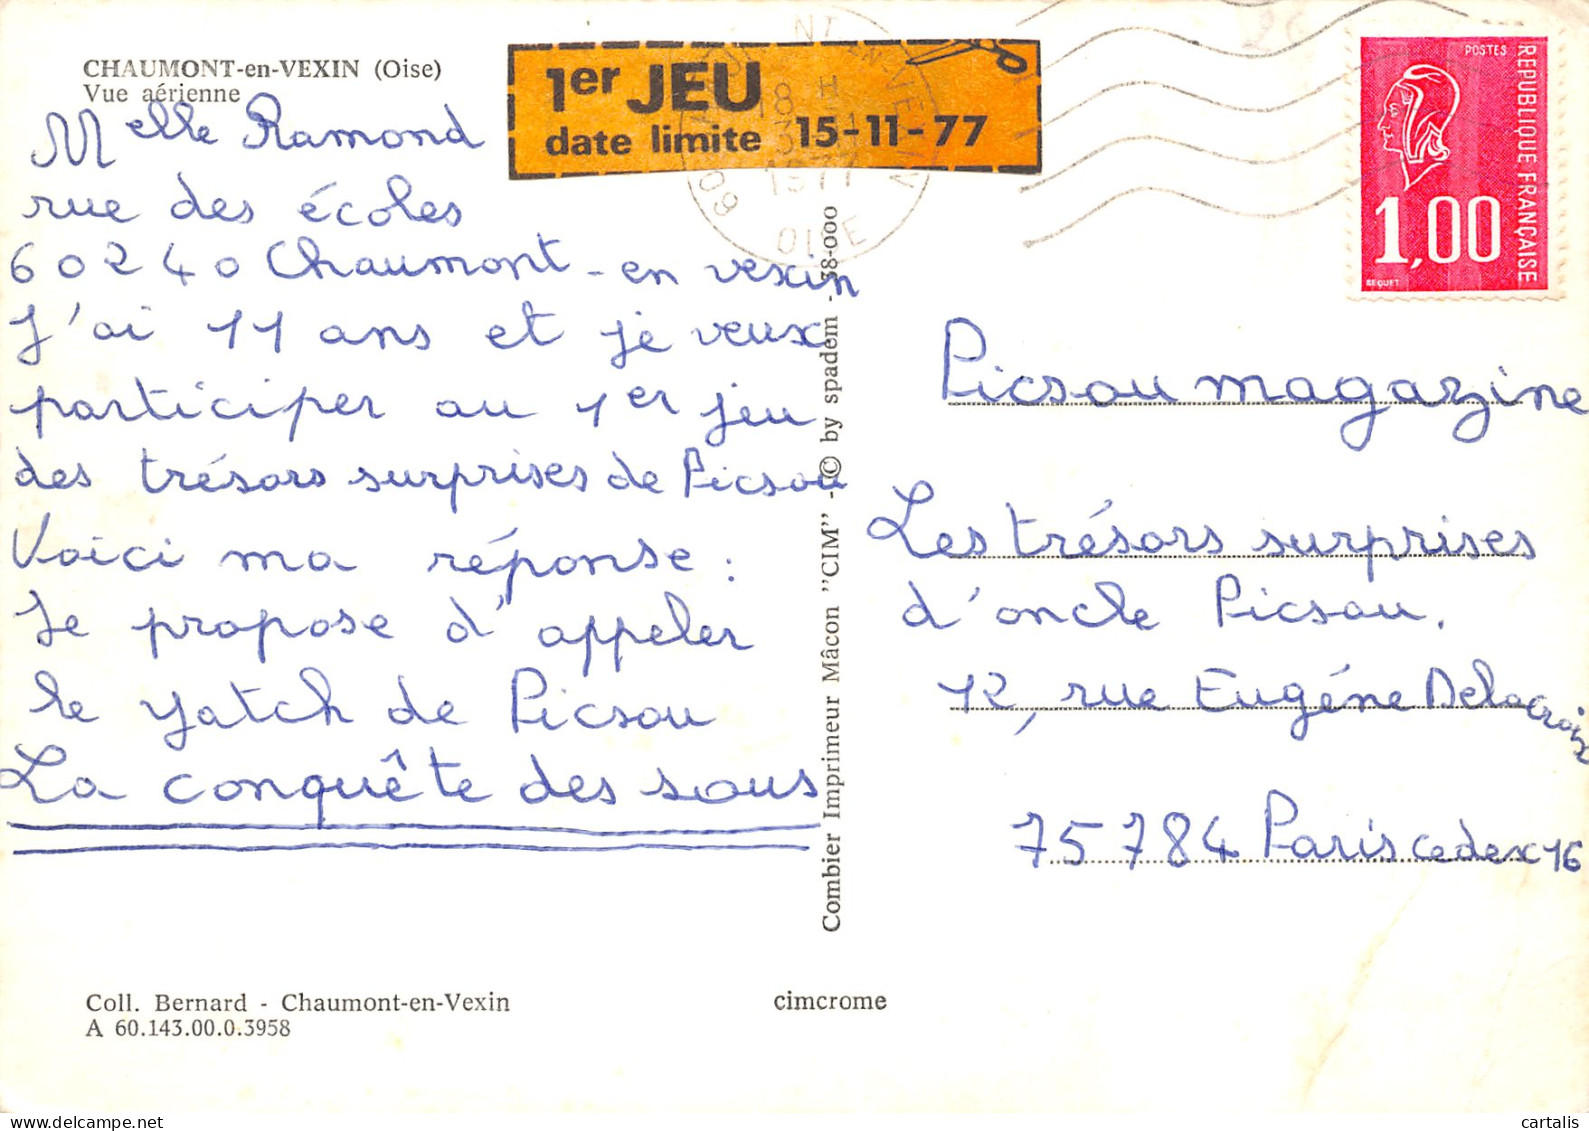 CHAUMONT-en-VEXIN (Oise)
Vue aérienne
Melle Ramond
rue des écoles
60240 Chaumont-en vexin
J'ai 11 ans et je veux
participer au 1er jeu
des trésors surprises de Picsou
Voici ma réponse :
Je propose d'appeler
le yatch de Picsou
La conquête des sous
Coll. Bernard - Chaumont-en-Vexin
A 60.143.00.0.3958
cimcrome
1er JEU
date limite 15-11-77
18 H
1977
60
OISE
Combier Imprimeur Mâcon "CIM" - © by spadem - 38-000
POSTES
REPUBLIQUE FRANÇAISE
1,00
BEQUET
Picsou magazine
Les trésors surprises
d'oncle Picsou.
12, rue Eugéne Delacroix
75784 Paris cedex 16
cartalis
www.delcampe.net